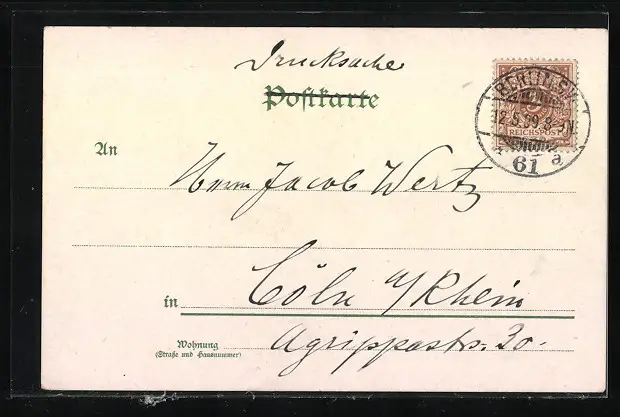 Drucksache
Postkarte
BERLIN S.W.
12.5.99.8-9N
REICHSPOST
61 a
An
Herrn Jacob Wertz
in Cöln a/Rhein
Wohnung
(Straße und Hausnummer)
Agrippastr. 20.